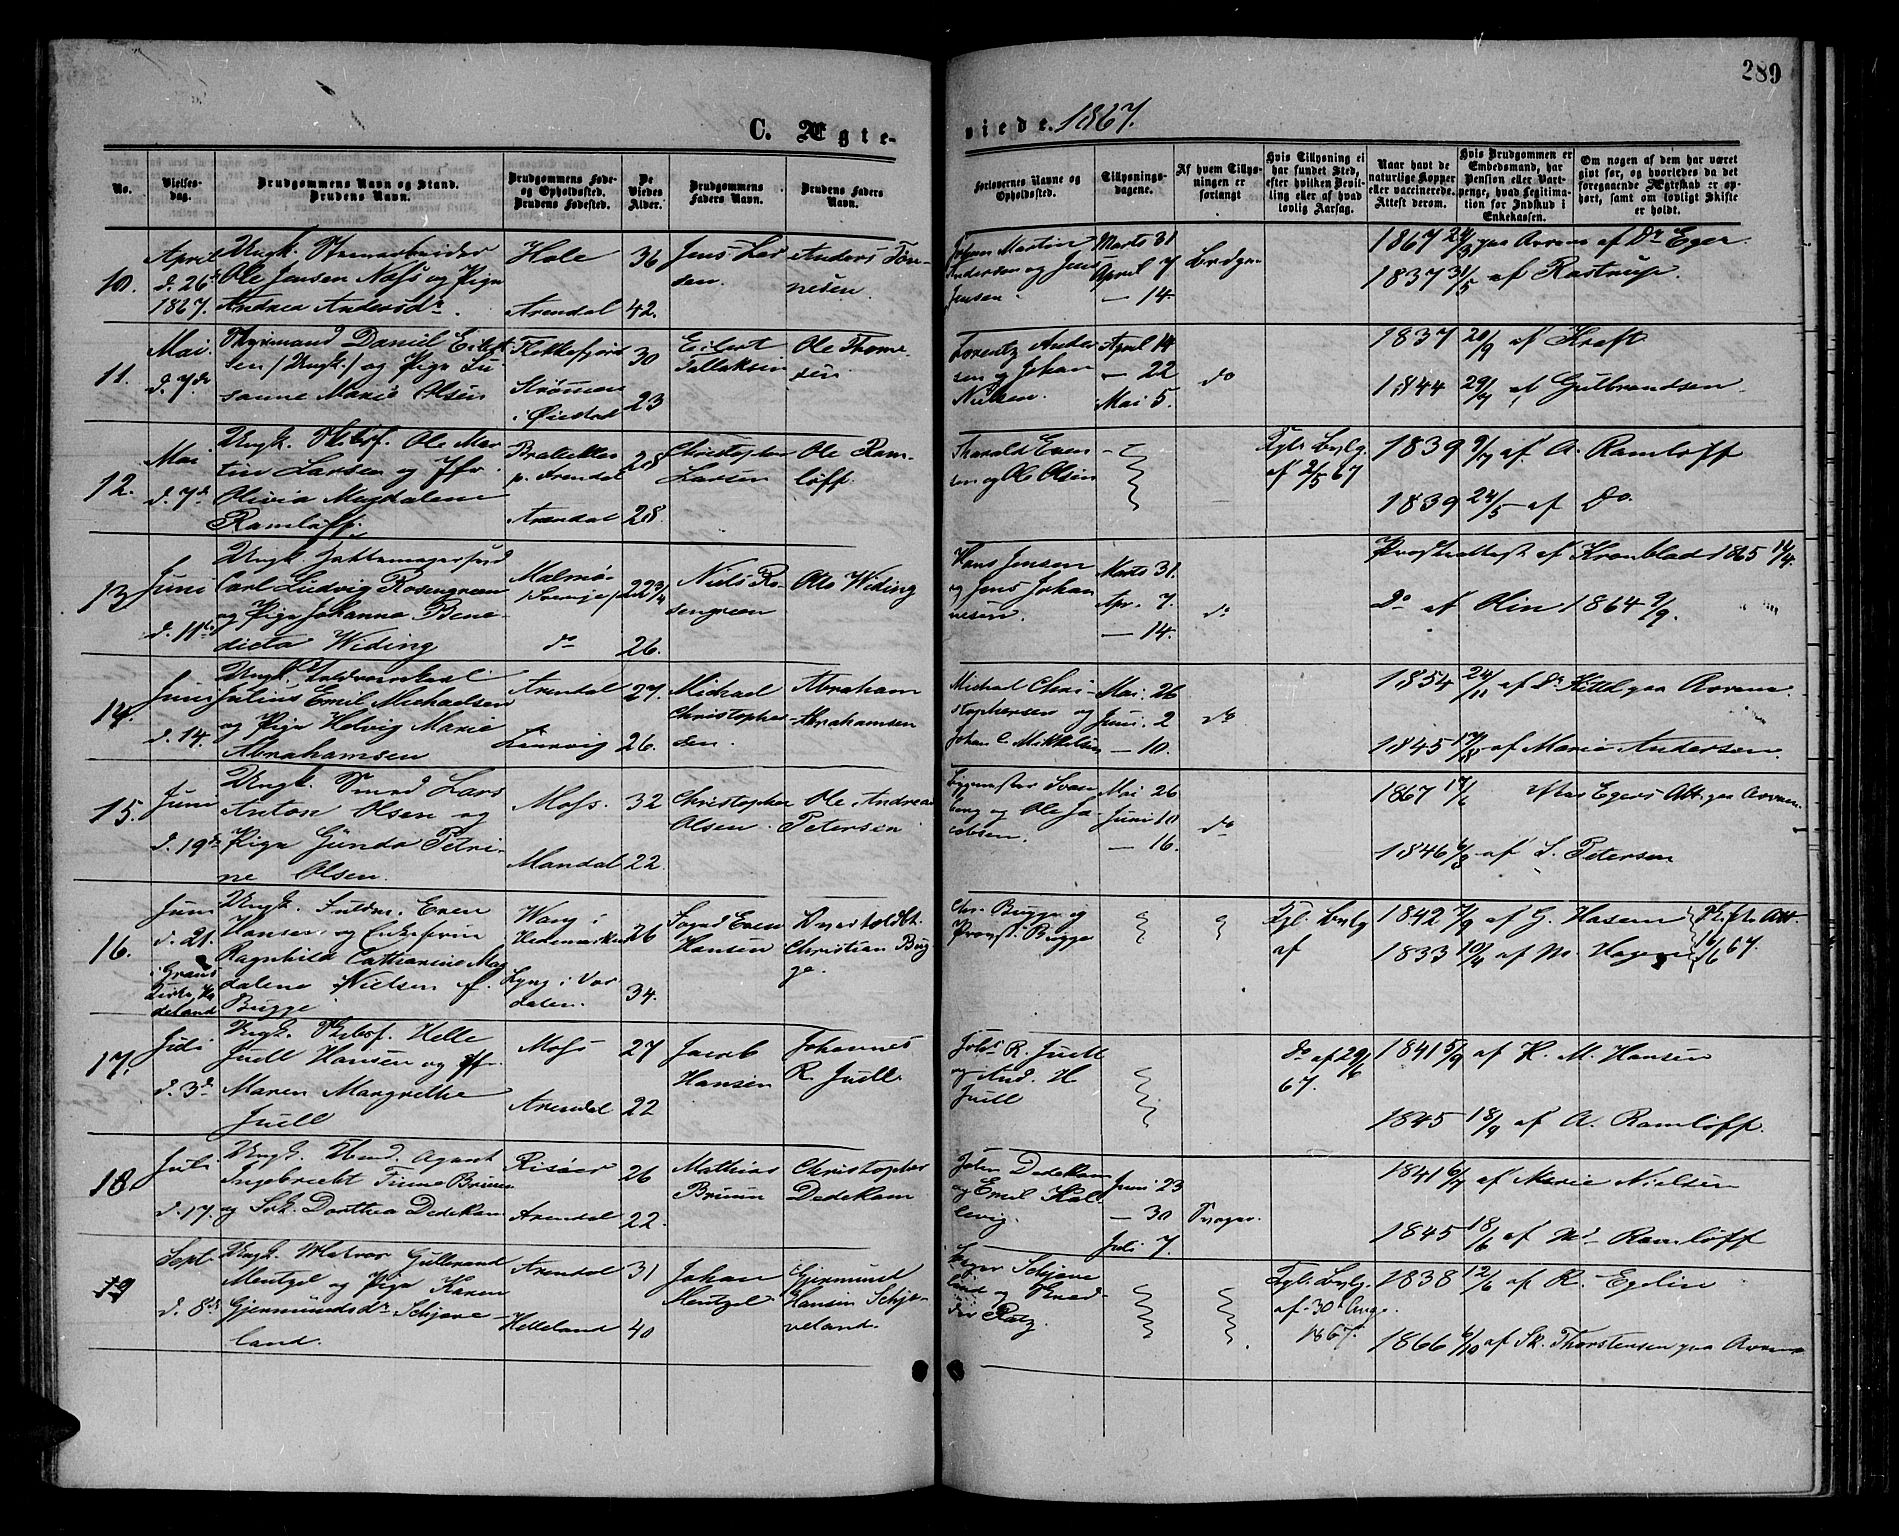 289
C. Ægte-
viede. 1867.
No.
Vielses-
dag.
Brudgommens Navn og Stand.
Brudens Navn.
Brudgommens Føde-
og Opholdssted.
Brudens Fødested.
De
Viedes
Alder.
Brudgommens
Faders Navn.
Brudens Faders
Navn.
Forlovernes Navne og
Opholdssted.
Tillysnings-
dagene.
Af hvem Tillys-
ningen er
forlangt
Hvis Tillysning ei
har fundet Sted,
efter hvilken Bevil-
ling eller af hvad
lovlig Aarsag.
Naar havt de
naturlige Kopper
eller vaccinerede.
Attest derom.
Hvis Brudgommen er
Embedsmand, har
Pension eller Vart-
penge, hvad Legitima-
tion for Indskud i
Enkekassen.
Om nogen af dem har været
gift før, og hvorledes da det
foregaaende Ægteskab er op-
hørt, samt om lovligt Skifte
er holdt.
10.
April
d. 26
1867.
Ungk.
Ole Jensen Næss og Pige
Andrea Andersdr.
Hole
Arendal
36
42.
Jens Lar
sen.
Anders Tøn-
nesen.
Johan Martin
Andersen og Jens
Jensen.
Marts 31
April 7
— 14.
Brdgm
1867 24/3 paa Armen af Dr Eger.
1837 31/5 af Rostrup.
11.
Mai.
d. 7de
Styrmand Daniel Eilert
sen (Ungk.) og Pige Su
sanne Marie Olsen
Flekkefjord
Strømmen
i Øiestad
30
23
Eilert
Tallaksen
Ole Thome
sen
Lorentz Ander
sen og Johan
Nielsen.
April 14
— 22
Mai 5.
do
1837 20/9 af Kraft
1844 29/7 af Gulbrandsen
12.
Mai
d. 7de
Ungk. Skibsf. Ole Mar
tin Larsen og Jfr.
Olivia Magdalene
Ramløff.
Bratteklev
p. Arendal
Arendal
28
28.
Christopher
Larsen
Ole Ram-
løff.
Tharald Even
sen og Ole Olsen
Kgl. Bevlg.
af 2/5 67
1839 9/7 af A. Ramløff
1839 24/5 af do.
13
Juni
d. 11te
Ungk. Hattemagersvd
Carl Ludvig Rosengreen
og Pige Johanne Bene-
dicta Widing
Malmø
Sverige
do
22 3/4
26.
Niels Ro-
sengreen
Otto Widing
Hans Jensen
og Jens Johan
nesen.
Marts 31.
Apr. 7.
— 14.
do
Præsteattest af Kronblad 1865 14/4.
Do af Olin 1864 9/9.
14.
Juni
d. 14.
Ungk.
Julius Emil Michaelsen
og Pige Helvig Marie
Abrahamsen
Arendal
Laurvig
27.
26.
Michael
Christopher
sen.
Abraham
Abrahamsen
Michael Chri-
stophersen og
Johan C. Mikkelsen
Mai. 26
Juni. 2
— 10.
do
1854 24/11 af Dr Kittel paa Armene
1845 17/8 af Marie Andersen.
15.
Juni
d. 19de
Ungk. Smed Lars
Anton Olsen og
Pige Gunda Petri-
ne Olsen.
Moss.
Mandal
32
22.
Christopher
Olsen.
Ole Andreas
Petersen
Bygmester Svan
berg og Ole Ja-
cobsen.
Mai 26
Juni 10
— 16.
do
1867 17/6 efter Egers Att. paa Armen.
1846 6/8 af S. Petersen
16.
Juni
d. 21.
i Grans
Kirke, Ha
deland
Ungk. Fuldm. Even
Hansen og Enkefrue
Ragnhild Catharine Mag
dalene Nielsen f.
Bugge
Wang i
Hedemarken
Lyng i Vær
dalen.
26
34.
Foged Even
Hansen
Overtoldbt.
Christian Bug
ge.
Chr. Bugge og
Provst Bugge
Kgl. Bevlg
af
1842 7/9 af G. Hasen
1833 10/4 af M. Hagen
Skifte Att.
16/6 67.
17.
Juli
d. 3de
Ungk. Skibsf. Helle
Juell Hansen og Jfr.
Maren Margrethe
Juell
Moss
Arendal
27
22
Jacob
Hansen
Johannes
R. Juell.
Johs R. Juell
og And. H
Juell
do af 29/6
67.
1841 5/9 af K. M. Hansen
1845 18/9 af A. Ramløff.
18.
Juli
d. 17.
Ungk. Hand. Agent
Ingebrecht Finne Bruun
og Frk. Dorthea Dedekam
Risøer
Arendal
26
22.
Mathias
Bruun
Christopher
Dedekam
John Dedekam
og Emil Kal
levig.
Juni 23
— 30
Juli 7.
1841 6/7 af Marie Nielsen
1845 18/6 af Md Ramløff
19
Sept.
d. 8de
Ungk. Matros Gullerand
Mentzel og Pige Karen
Gjermundsdr Schjeve-
land.
Arendal
Helleland
31
40
Johan
Mentzel
Gjermund
Hansen Schje-
veland.
Kgl. Bevlg.
af 30 Aug.
1867.
1838 12/6 af R. Egelin
1866 6/10 af Sk. Thorstensen paa Armene